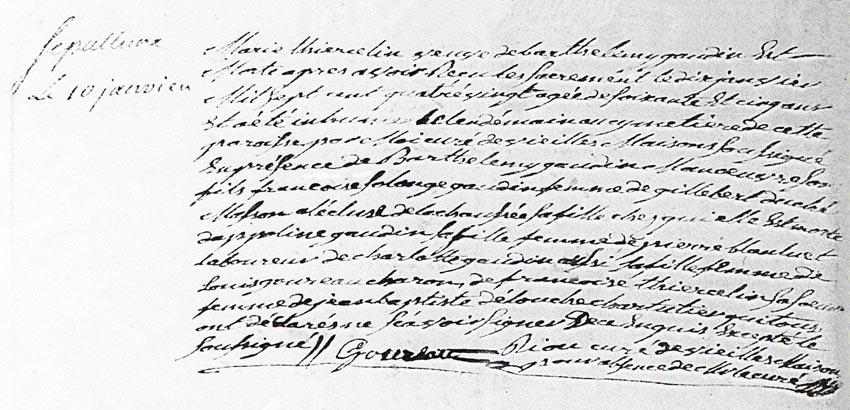 Sepulture
Le 10 janvier
Marie thiercelin veuve de barthelemy gaudin Est
Morte apres avoir Recu les Sacrement le dix janvier
Mil Sept cent quatrevingt agée de Soixante Et cinq ans
Et a été inhumée le lendemain au cymetiere de cette
paroisse par Moi curé de vieilles Maisons Soussigné
En présence de Barthelemy gaudin Manoeuvre Son
fils francoise Solange gaudin femme de gillebert
Masson a lécluse de la chaussée Sa fille ches qui elle Est morte
dappoline gaudin Sa fille femme de pierre blanluet
laboureur de charlotte gaudin aussi Sa fille femme de
Louis goureau charon, de francoise thiercelin Sa Soeur
femme de jean baptiste delouche chartutier qui tous
ont déclarés ne Scavoir Signer De ce Enquis Excepté le
Soussigné // Goureau Rion curé de vieilles Maisons
pour absence de Mr le curé